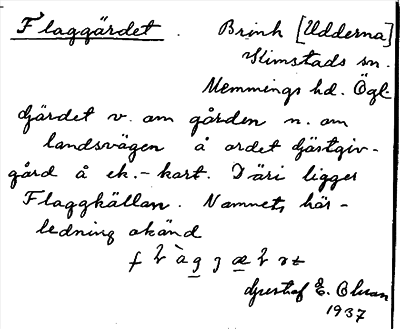 Flaggärdet. Brink [Udderna]
Skimstads sn.
Memmings hd. Ögl.
Gärdet v. om gården n. om
landsvägen å ordet Gästgiv-
gård å ek.-kart. Däri ligger
Flaggkällan. Namnets här-
ledning okänd
Gustaf E. Olsson
1937